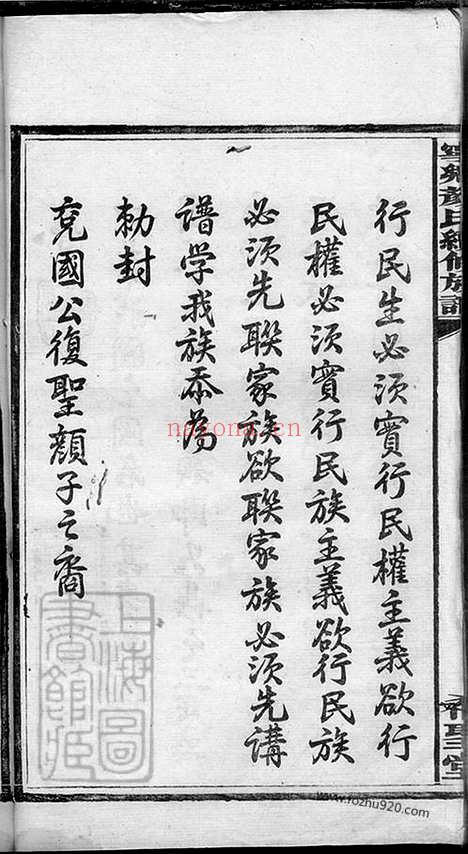 行民生必須實行民權主義欲行
民權必須實行民族主義欲行民族
必須先聯家族欲聯家族必須先講
譜学我族忝為
勅封
兗國公復聖顏子之裔
寧鄉顏氏續修族譜
復聖堂
上海圖書館藏
nayona.cn
www.fozhu920.com